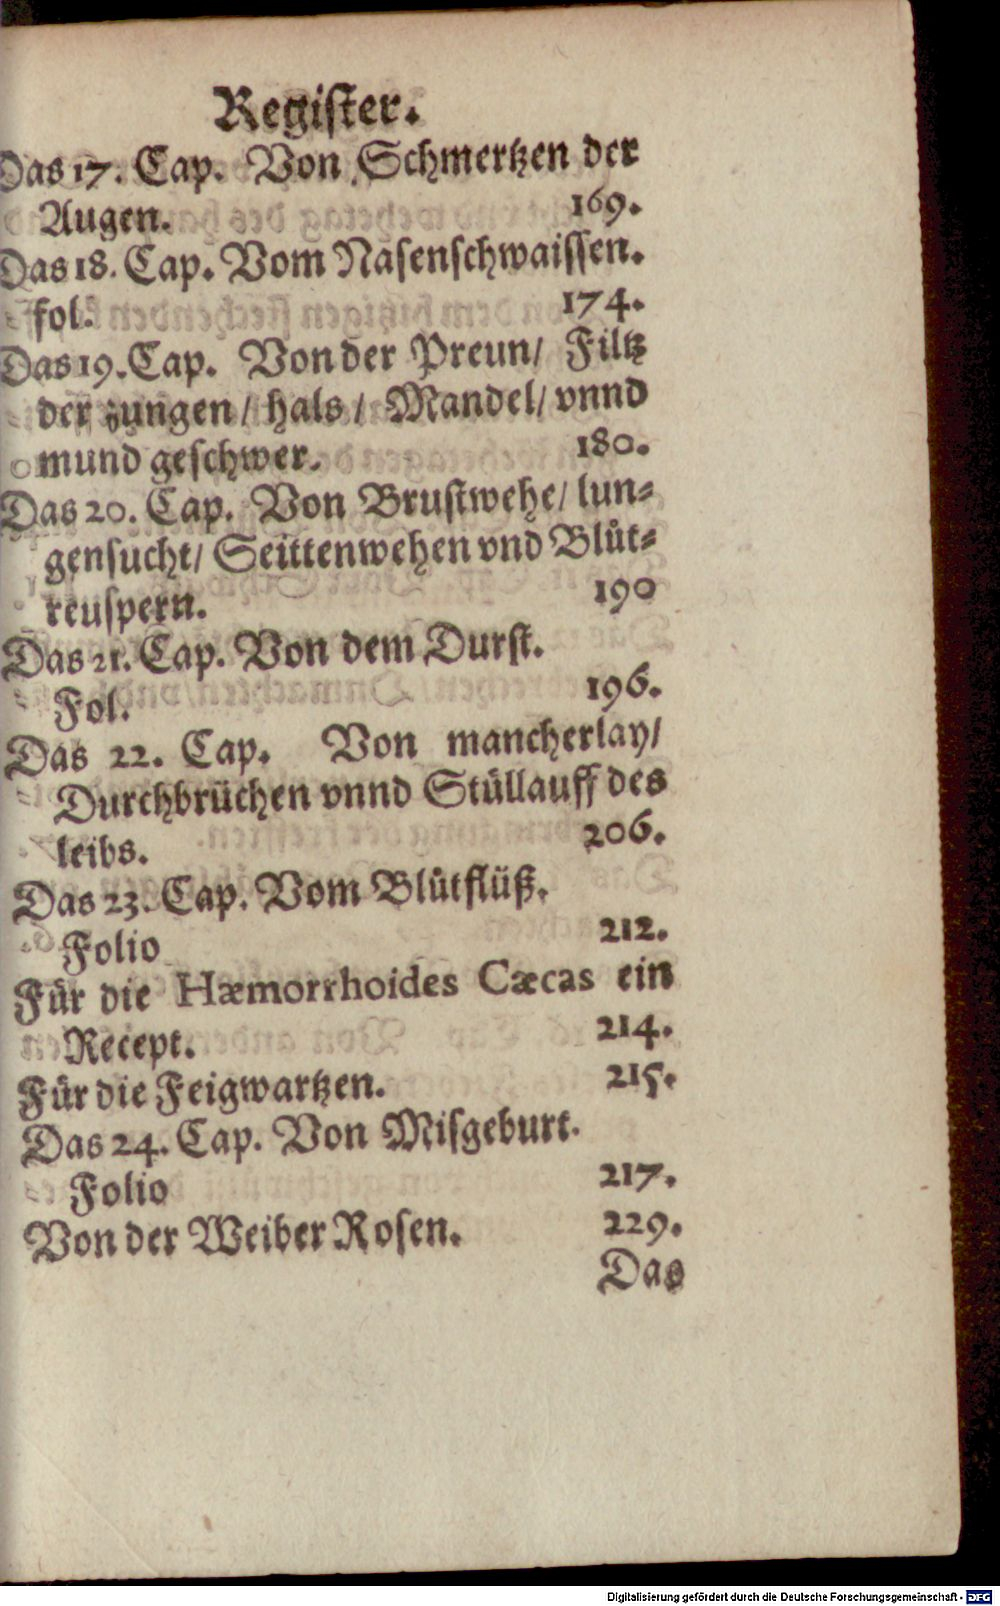 Register.
Das 17. Cap. Von Schmertzen der
Augen. 169.
Das 18. Cap. Vom Nasenschwaissen.
fol. 174.
Das 19. Cap. Von der Preun/ Filtz
der zungen/ hals/ Mandel/ vnnd
mund geschwer. 180.
Das 20. Cap. Von Brustwehe/ lun-
gensucht/ Seittenwehen vnd Blůt-
reuspern. 190
Das 21. Cap. Von dem Durst.
Fol. 196.
Das 22. Cap. Von mancherlay/
Durchbrüchen vnnd Stüllauff des
leibs. 206.
Das 23. Cap. Vom Blůtflüß.
Folio 212.
Für die Hæmorrhoides Cæcas ein
Recept. 214.
Für die Feigwartzen. 215.
Das 24. Cap. Von Misgeburt.
Folio 217.
Von der Weiber Rosen. 229.
Das
Digitalisierung gefördert durch die Deutsche Forschungsgemeinschaft - DFG